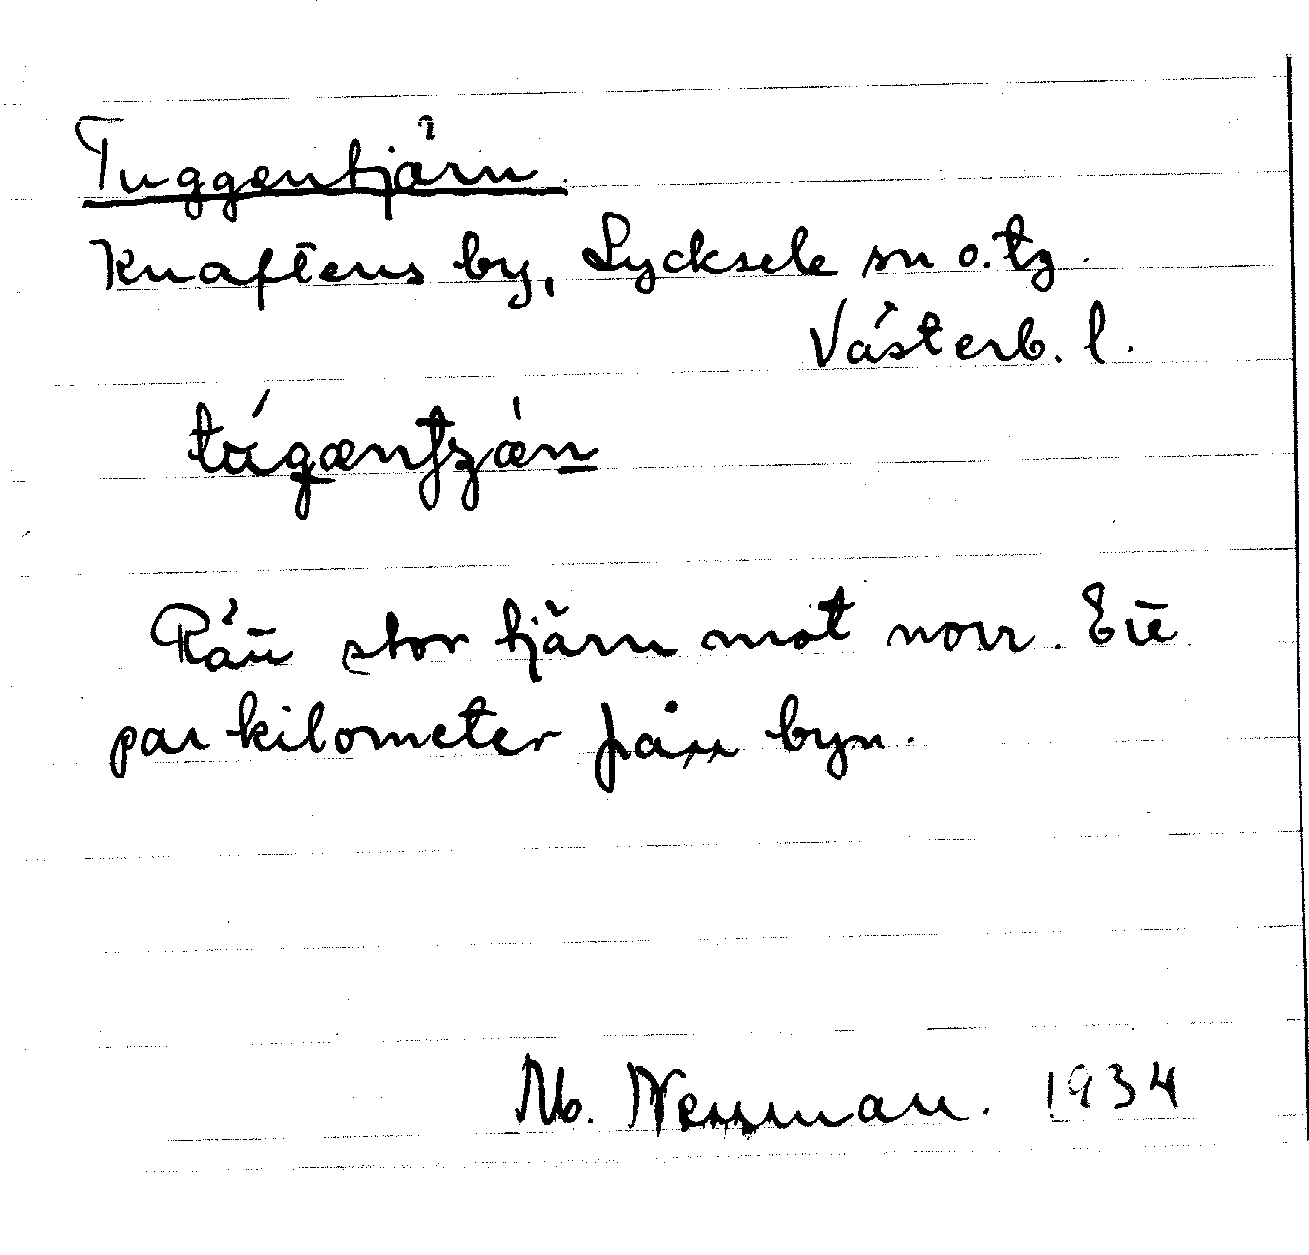 Tuggentjärn.
Knaftens by, Lycksele sn o. tg.
Västerb. l.
Rätt stor tjärn mot norr. Ett
par kilometer från byn.
Ab. Nessman. 1934